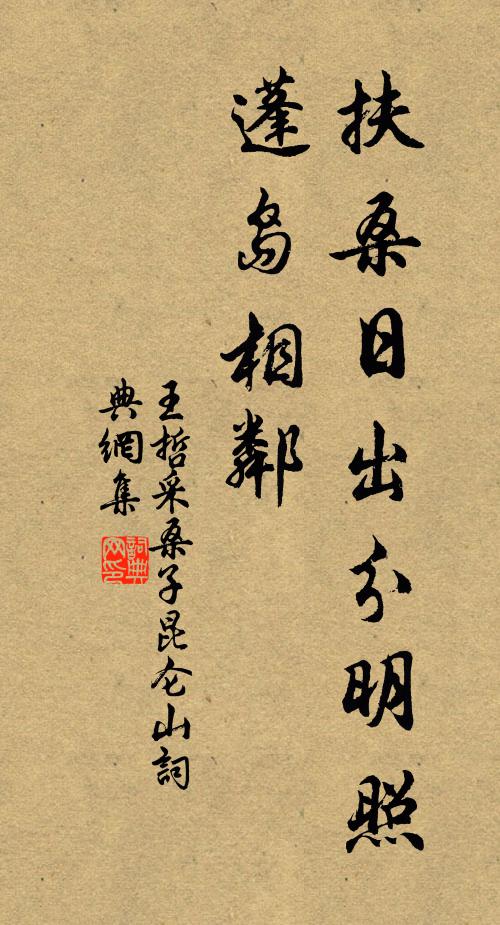 扶桑日出分明照
蓬島相鄰
王哲采桑子昆仑山詞
典網集
詞典網印